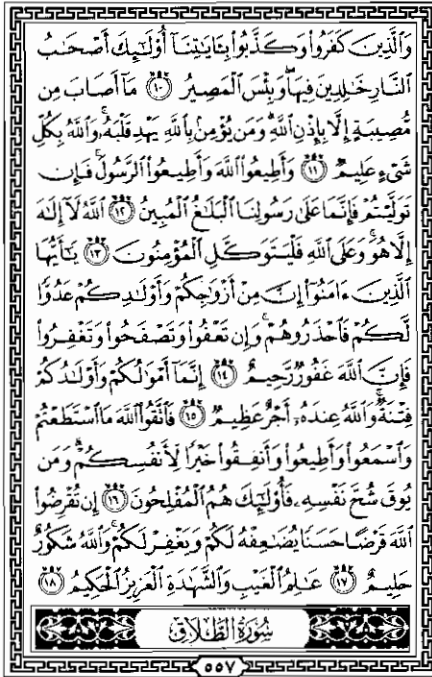 وَٱلَّذِينَ كَفَرُوا۟ وَكَذَّبُوا۟ بِـَٔايَـٰتِنَآ أُو۟لَـٰٓئِكَ أَصْحَـٰبُ
ٱلنَّارِ خَـٰلِدِينَ فِيهَا ۖ وَبِئْسَ ٱلْمَصِيرُ ١٠ مَآ أَصَابَ مِن
مُّصِيبَةٍ إِلَّا بِإِذْنِ ٱللَّهِ ۗ وَمَن يُؤْمِنۢ بِٱللَّهِ يَهْدِ قَلْبَهُۥ ۚ وَٱللَّهُ بِكُلِّ
شَىْءٍ عَلِيمٌ ١١ وَأَطِيعُوا۟ ٱللَّهَ وَأَطِيعُوا۟ ٱلرَّسُولَ ۚ فَإِن
تَوَلَّيْتُمْ فَإِنَّمَا عَلَىٰ رَسُولِنَا ٱلْبَلَـٰغُ ٱلْمُبِينُ ١٢ ٱللَّهُ لَآ إِلَـٰهَ
إِلَّا هُوَ ۚ وَعَلَى ٱللَّهِ فَلْيَتَوَكَّلِ ٱلْمُؤْمِنُونَ ١٣ يَـٰٓأَيُّهَا
ٱلَّذِينَ ءَامَنُوٓا۟ إِنَّ مِنْ أَزْوَٰجِكُمْ وَأَوْلَـٰدِكُمْ عَدُوًّا
لَّكُمْ فَٱحْذَرُوهُمْ ۚ وَإِن تَعْفُوا۟ وَتَصْفَحُوا۟ وَتَغْفِرُوا۟
فَإِنَّ ٱللَّهَ غَفُورٌ رَّحِيمٌ ١٤ إِنَّمَآ أَمْوَٰلُكُمْ وَأَوْلَـٰدُكُمْ
فِتْنَةٌ ۚ وَٱللَّهُ عِندَهُۥٓ أَجْرٌ عَظِيمٌ ١٥ فَٱتَّقُوا۟ ٱللَّهَ مَا ٱسْتَطَعْتُمْ
وَٱسْمَعُوا۟ وَأَطِيعُوا۟ وَأَنفِقُوا۟ خَيْرًا لِّأَنفُسِكُمْ ۗ وَمَن
يُوقَ شُحَّ نَفْسِهِۦ فَأُو۟لَـٰٓئِكَ هُمُ ٱلْمُفْلِحُونَ ١٦ إِن تُقْرِضُوا۟
ٱللَّهَ قَرْضًا حَسَنًا يُضَـٰعِفْهُ لَكُمْ وَيَغْفِرْ لَكُمْ ۚ وَٱللَّهُ شَكُورٌ
حَلِيمٌ ١٧ عَـٰلِمُ ٱلْغَيْبِ وَٱلشَّهَـٰدَةِ ٱلْعَزِيزُ ٱلْحَكِيمُ ١٨
سُورَةُ الطَّلَاقِ
٥٥٧